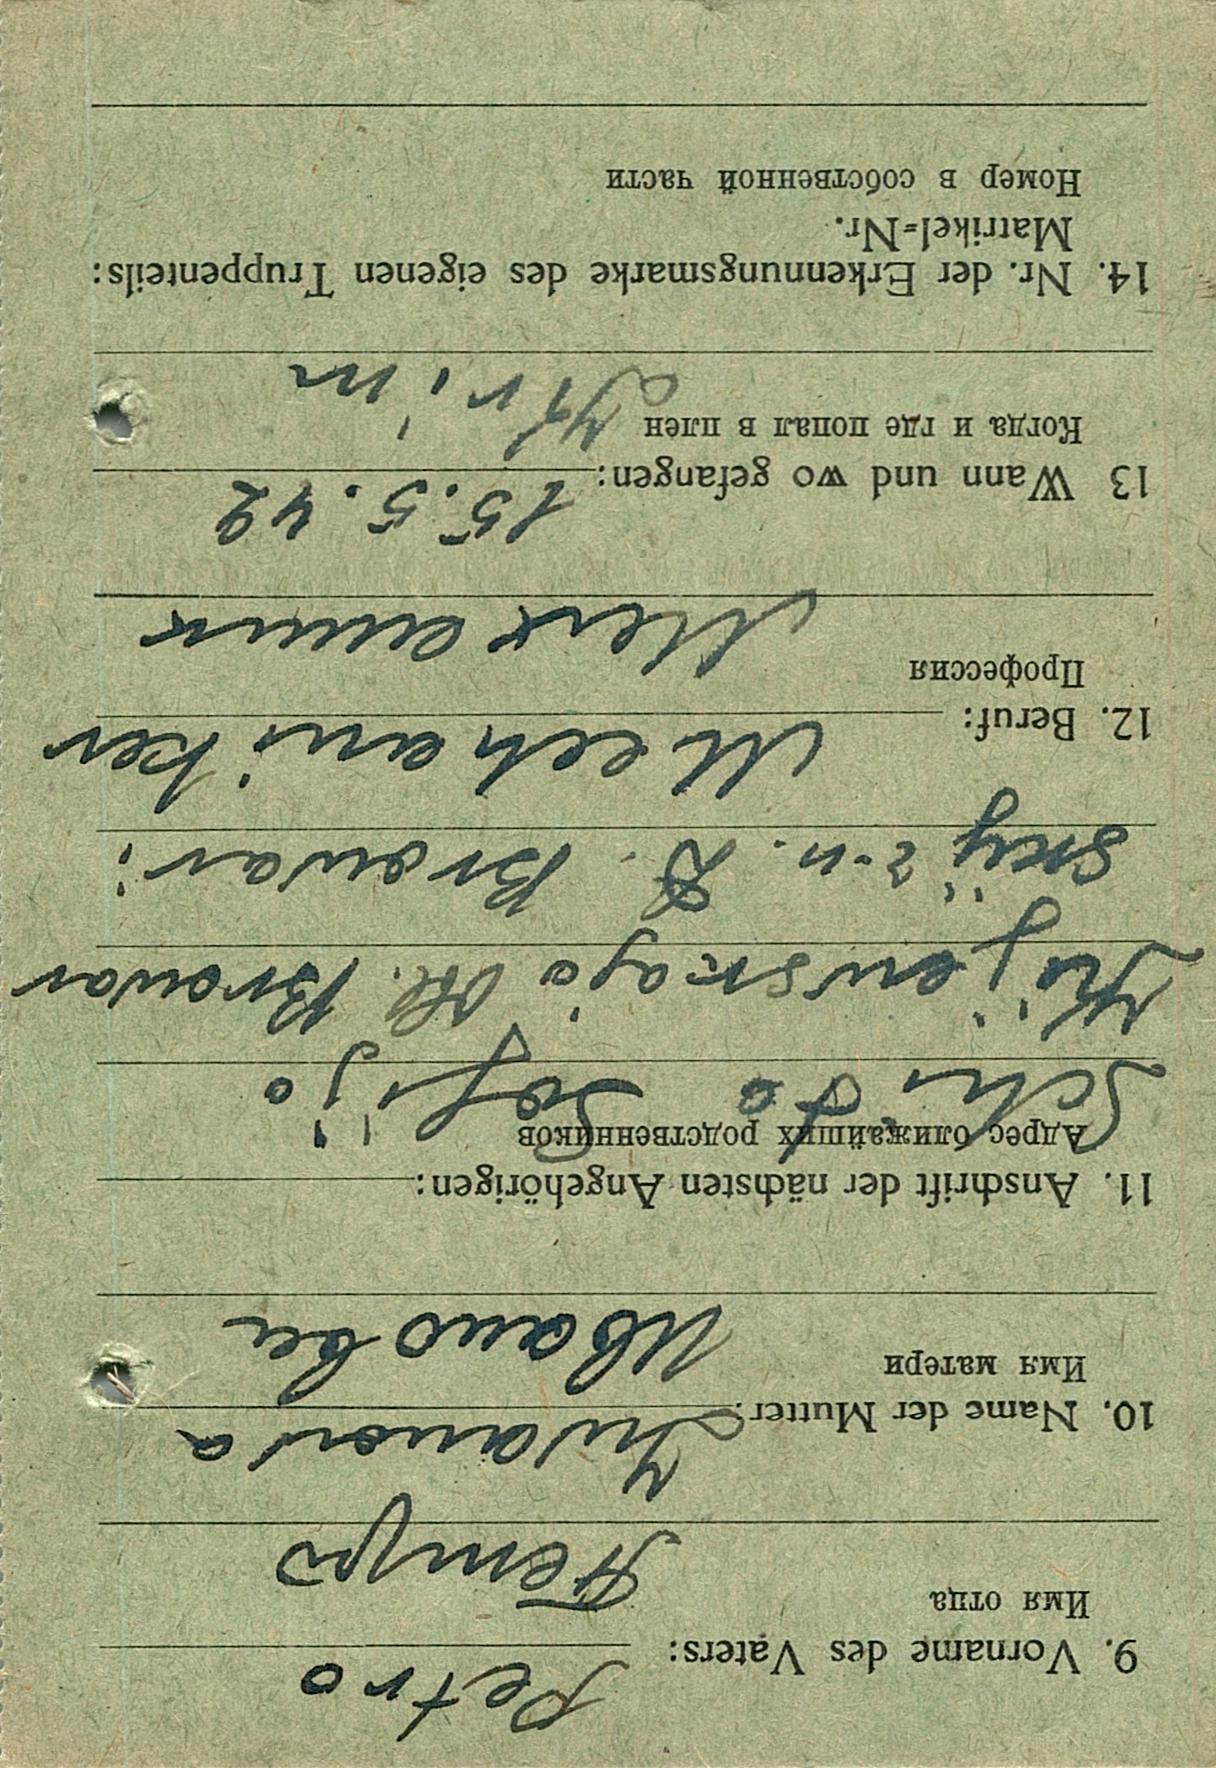 9. Vorname des Vaters: Petro
Имя отца
Петро
10. Name der Mutter: Iwanowa
Имя матери
Иванова
11. Anschrift der nächsten Angehörigen:
Адрес ближайших родственников
Sofijo
Kijewskajo Obl. Browar
skij r-n. D. Browari
12. Beruf: Mechaniker
Профессия
Механик
13 Wann und wo gefangen: 15.5.42
Когда и где попал в плен Krim
14. Nr. der Erkennungsmarke des eigenen Truppenteils:
Matrikel=Nr.
Номер в собственной части